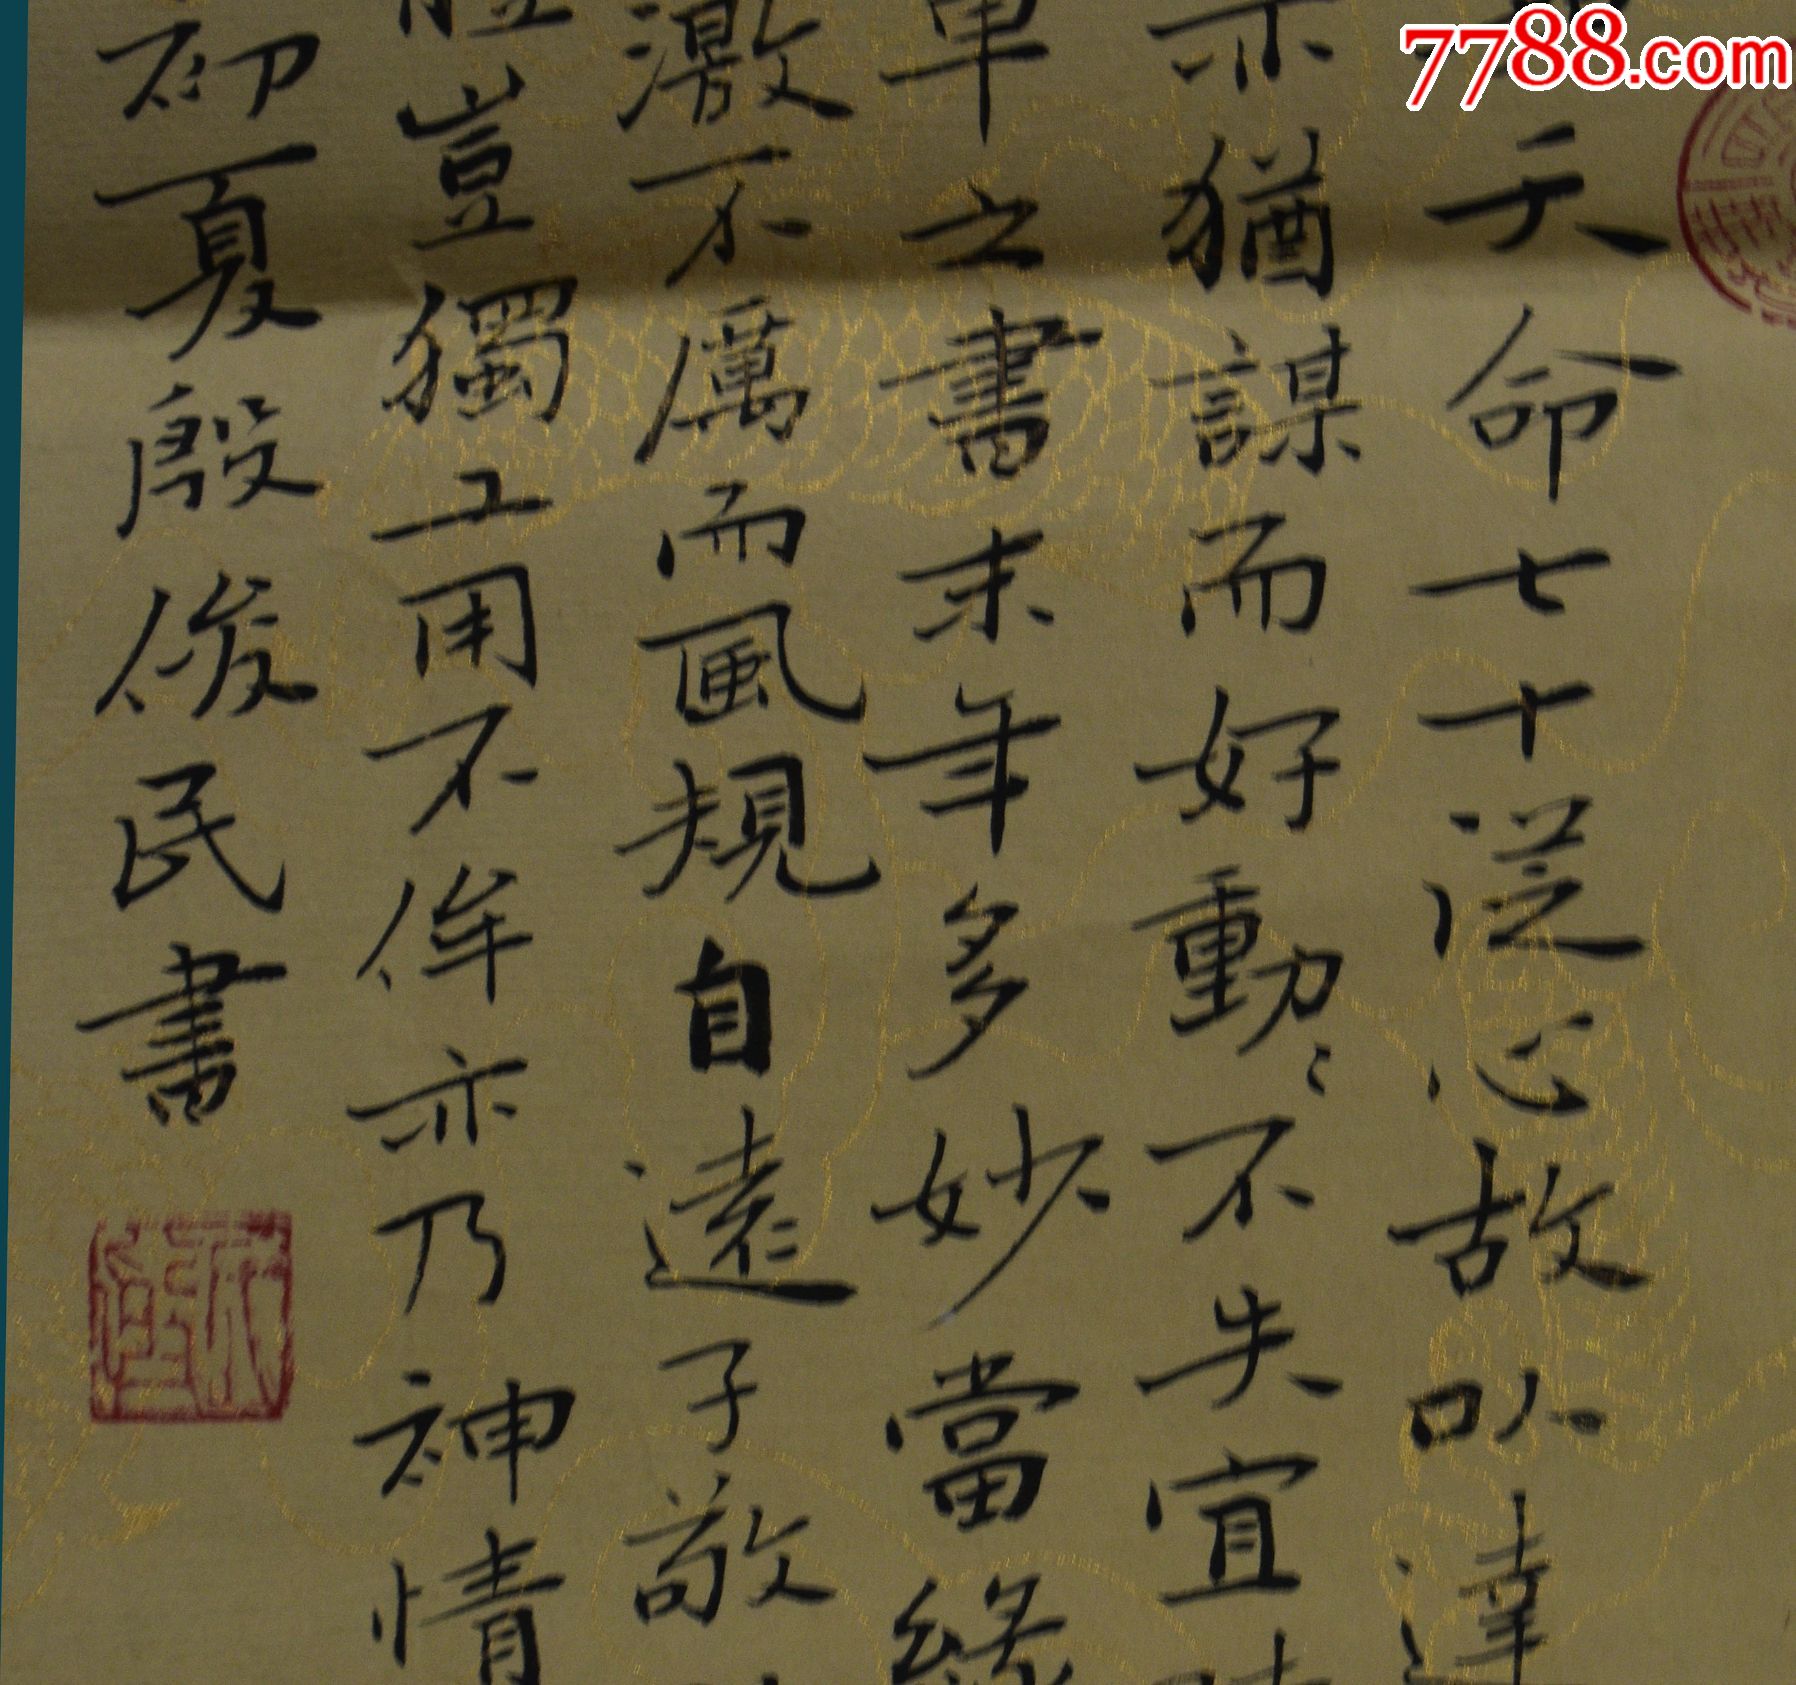 7788.com
天命七十従心故以達
亦猶謀而好動〻不失宜
單之書末年多妙當緣
激不厲而風規自遠子敬
體豈獨工用不侔亦乃神情
初夏殷俊民書